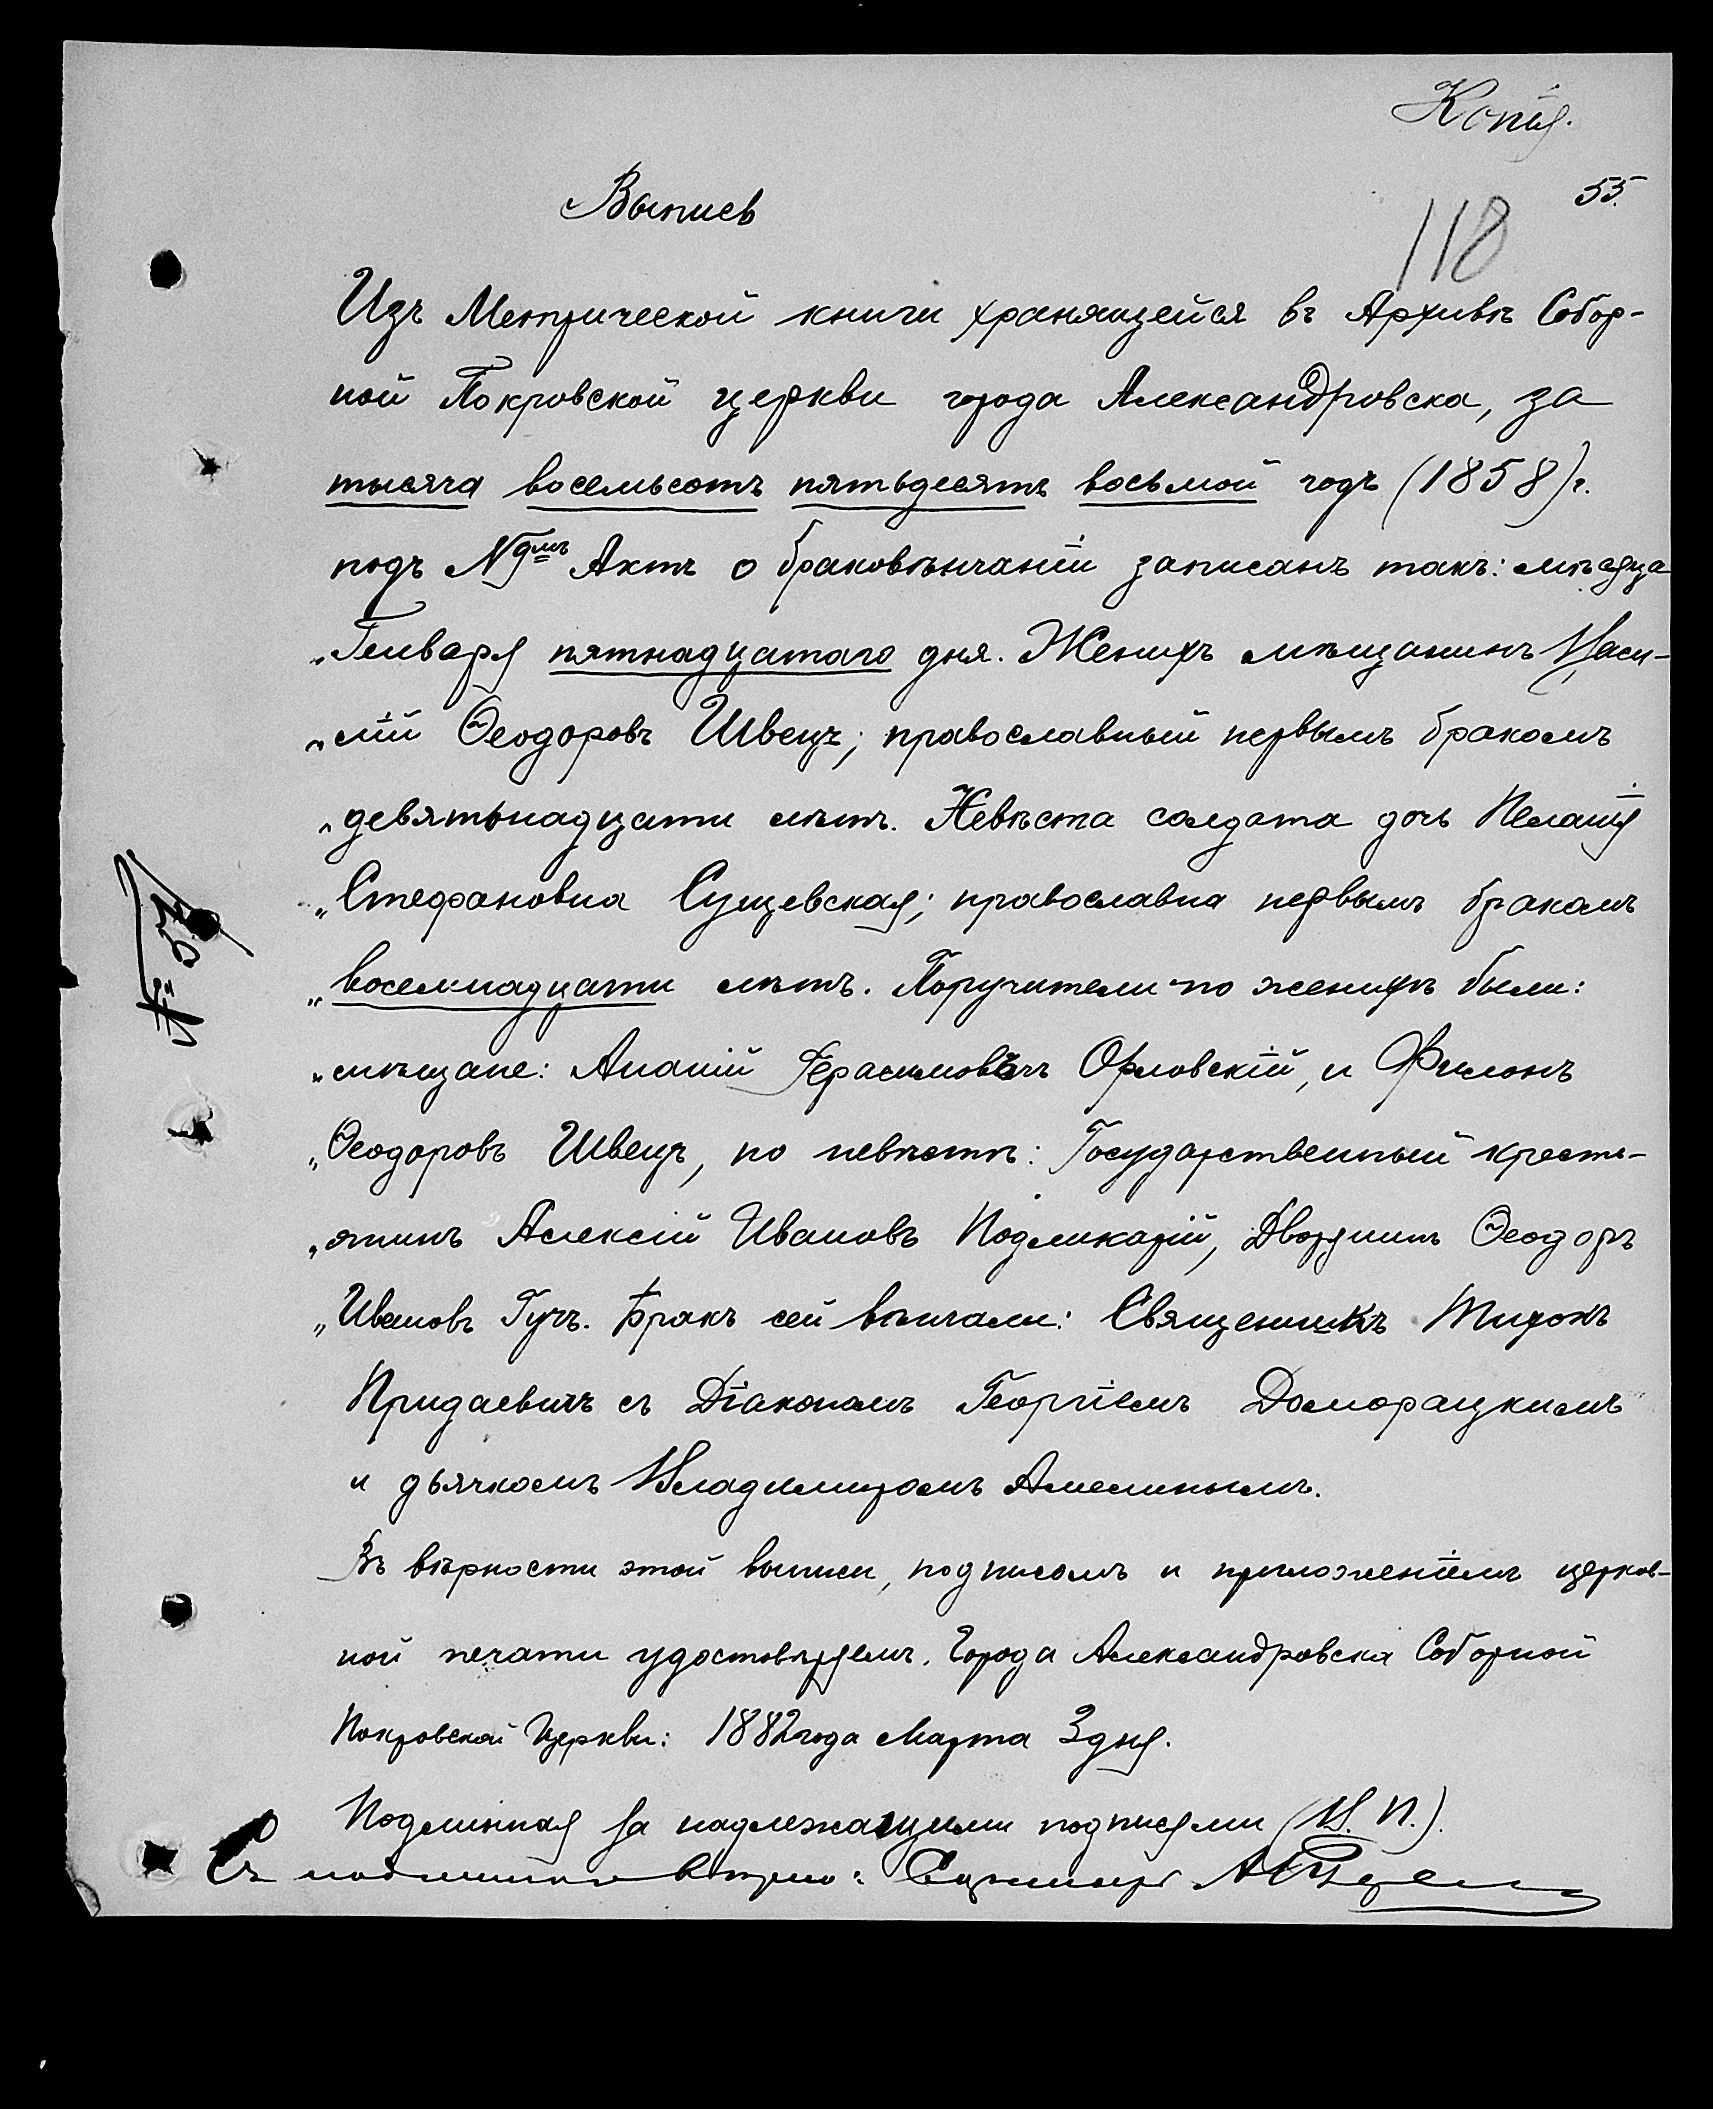 Копія.
55.
118
Выпись
Изъ Метрической книги хранящейся въ Архивѣ Собор-
ной Покровской церкви города Александровска, за
тысяча восемьсотъ пятьдесятъ восьмой годъ (1858) г.
подъ № Актъ о браковѣнчаніи записанъ такъ: мѣсяца
„Генваря пятнадцатаго дня. Женихъ мѣщанинъ Васи-
„лій Ѳеодоровъ Швецъ; православный первымъ бракомъ
„девятьнадцати лѣтъ. Невѣста солдата дочь Пелагія
„Стефановна Сущевская; православна первымъ бракомъ
„восемнадцати лѣтъ. Поручители по женихѣ были:
„мѣщане: Ананій Герасимовъ Орловскій, и Филонъ
„Ѳеодоровъ Швецъ, по невѣстѣ: Государственный кресть-
„янинъ Алексій Ивановъ Дворянинъ Ѳеодоръ
„Ивановъ Гучъ. Бракъ сей вѣнчали: Священникъ Тихонъ
Придаевичъ съ Діакономъ Георгіемъ Доморацкимъ
и дьячкомъ Владимиромъ Амелинымъ.
Въ вѣрности этой выписи, подписомъ и приложеніемъ церков-
ной печати удостовѣряемъ. Города Александровска Соборной
Покровской Церкви: 1882 года Марта 3 дня.
Подлинная за надлежащими подписями (М. П.).
Съ подлиннымъ вѣрно: Секретарь